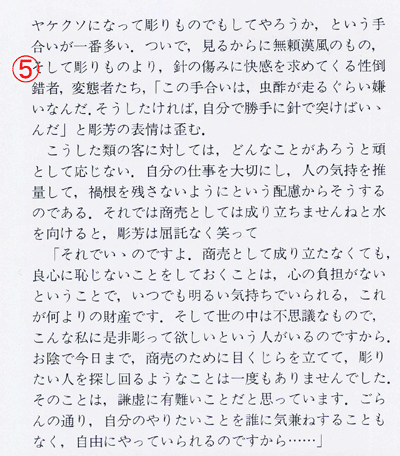 ヤケクソになって彫りものでもしてやろうか，という手
合いが一番多い．ついで，見るからに無頼漢風のもの，
⑤そして彫りものより，針の傷みに快感を求めてくる性倒
錯者，変態者たち，「この手合いは，虫酢が走るぐらい嫌
いなんだ．そうしたければ，自分で勝手に針で突けばいゝ
んだ」と彫芳の表情は歪む．
　こうした類の客に対しては，どんなことがあろうと頑
として応じない．自分の仕事を大切にし，人の気持を推
量して，禍根を残さないようにという配慮からそうする
のである．それでは商売としては成り立ちませんねと水
を向けると，彫芳は屈託なく笑って
　「それでいゝのですよ．商売として成り立たなくても，
良心に恥じないことをしておくことは，心の負担がない
ということで，いつでも明るい気持ちでいられる，これ
が何よりの財産です．そして世の中は不思議なもので，
こんな私に是非彫って欲しいという人がいるのですから．
お陰で今日まで，商売のために目くじらを立てて，彫り
たい人を探し回るようなことは一度もありませんでした．
そのことは，謙虚に有難いことだと思っています．ごら
んの通り，自分のやりたいことを誰に気兼ねすることも
なく，自由にやっていられるのですから……」